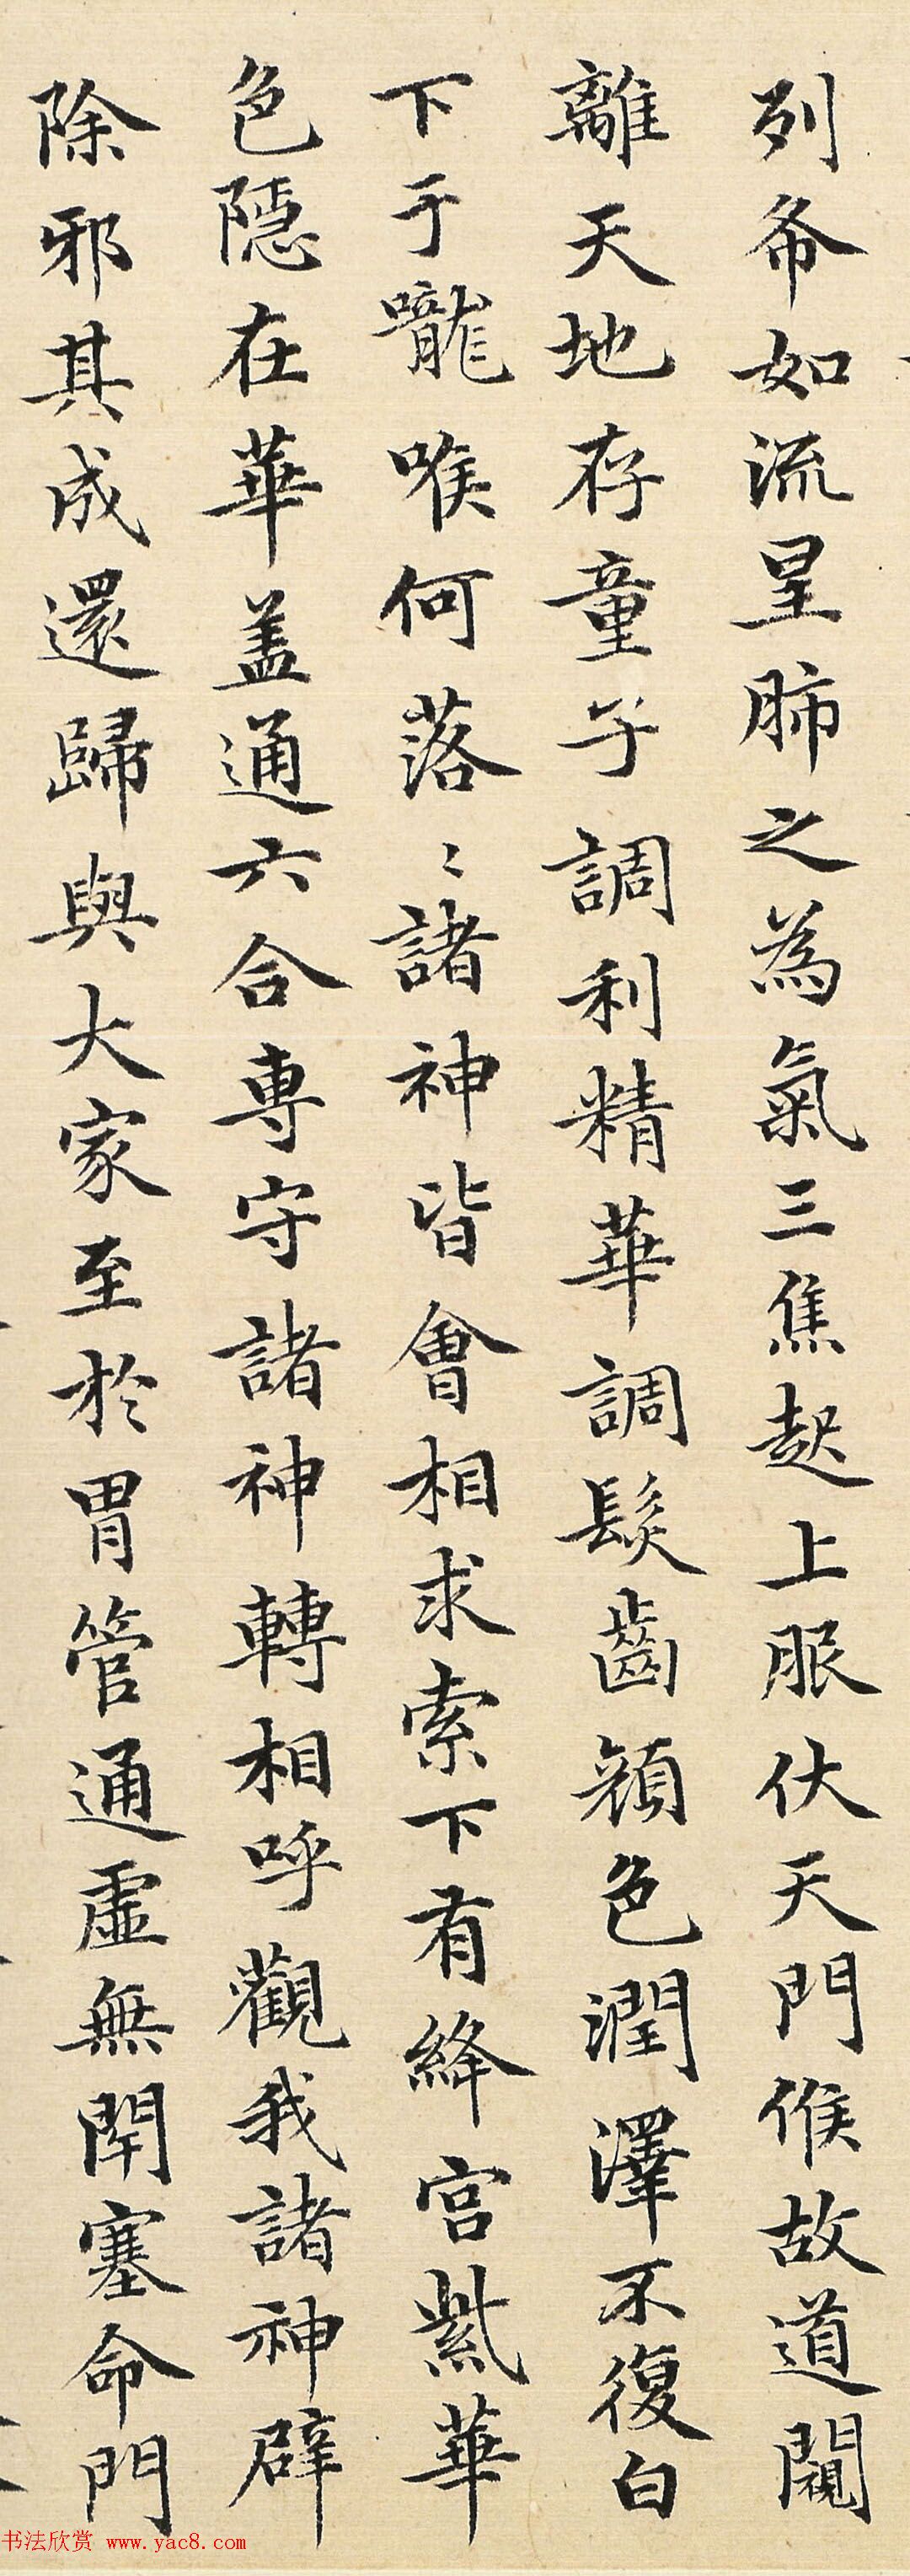 列布如流星肺之為氣三焦起上服伏天門候故道闚
離天地存童子調利精華調髮齒顏色潤澤不復白
下于嚨喉何落〻諸神皆會相求索下有絳宮紫華
色隱在華盖通六合專守諸神轉相呼觀我諸神辟
除邪其成還歸與大家至於胃管通虛無閉塞命門
书法欣赏 www.yac8.com